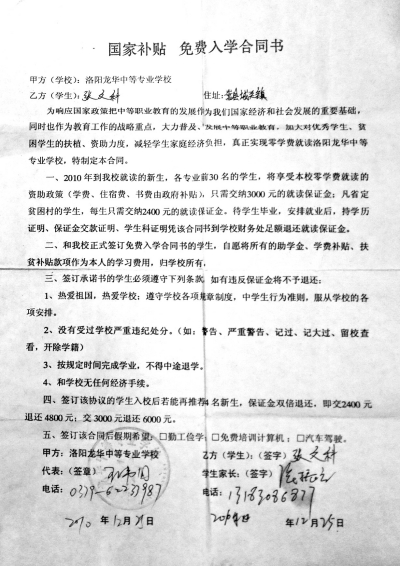 国家补贴 免费入学合同书
甲方(学校):洛阳龙华中等专业学校
乙方(学生): 文科 住址:
为响应国家政策把中等职业教育的发展作为我们国家经济和社会发展的重要基础,
同时也作为教育工作的战略重点,大力普及、发展中等职业教育,加大对优秀学生、贫
困学生的扶植、资助力度,减轻学生家庭经济负担,真正实现零学费就读洛阳龙华中等
专业学校,特制定本合同。
一、2010年到我校就读的新生,各专业前30名的学生,将享受本校零学费就读的
资助政策(学费、住宿费、书费由政府补贴),只需交纳3000元的就读保证金;凡省定
贫困村的学生,每生只需交纳2400元的就读保证金。待学生毕业,安排就业后,持学历
证明、保证金交款证明、学生科证明凭该合同书到学校财务处足额退还就读保证金。
二、和我校正式签订免费入学合同书的学生,自愿将所有的助学金、学费补贴、扶
贫补贴款项作为本人的学习费用,归学校所有。
三、签订承诺书的学生必须遵守下列条款,如有违反保证金将不予退还:
1、热爱祖国,热爱学校;遵守学校各项规章制度,中学生行为准则,服从学校的各
项安排。
2、没有受过学校严重违纪处分。(如:警告、严重警告、记过、记大过、留校查
看,开除学籍)
3、按规定时间完成学业,不得中途退学。
4、和学校无任何经济手续。
四、签订该协议的学生入校后若能再推荐4名新生,保证金双倍退还。即交2400元
退还4800元;交3000元退还6000元。
五、签订该合同后假期希望:□勤工俭学;□免费培训计算机;□汽车驾驶。
甲方:洛阳龙华中等专业学校 乙方(学生):(签字) 文科
代表:(签章) 学生家长:(签字)
电话:0379-62237987 电话:13183086877
2010年12月25日 2010年12月25日